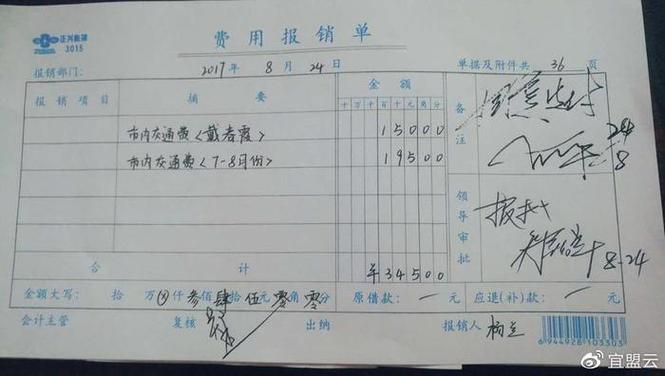 正兴账簿
3015
费用报销单
报销部门: 2017年8月24日 单据及附件共36页
报销项目 摘要 金额 备注
十万千百十元角分
市内交通费<戴春霞> 15000
市内交通费<7-8月份> 19500
24/8
领导审批
8-24
合计 ¥34500
金额大写: 拾万⊗仟叁佰肆拾伍元零角零分 原借款: 一元 应退(补)款: 一元
会计主管 复核 出纳 报销人
6944928103303
@宜盟云